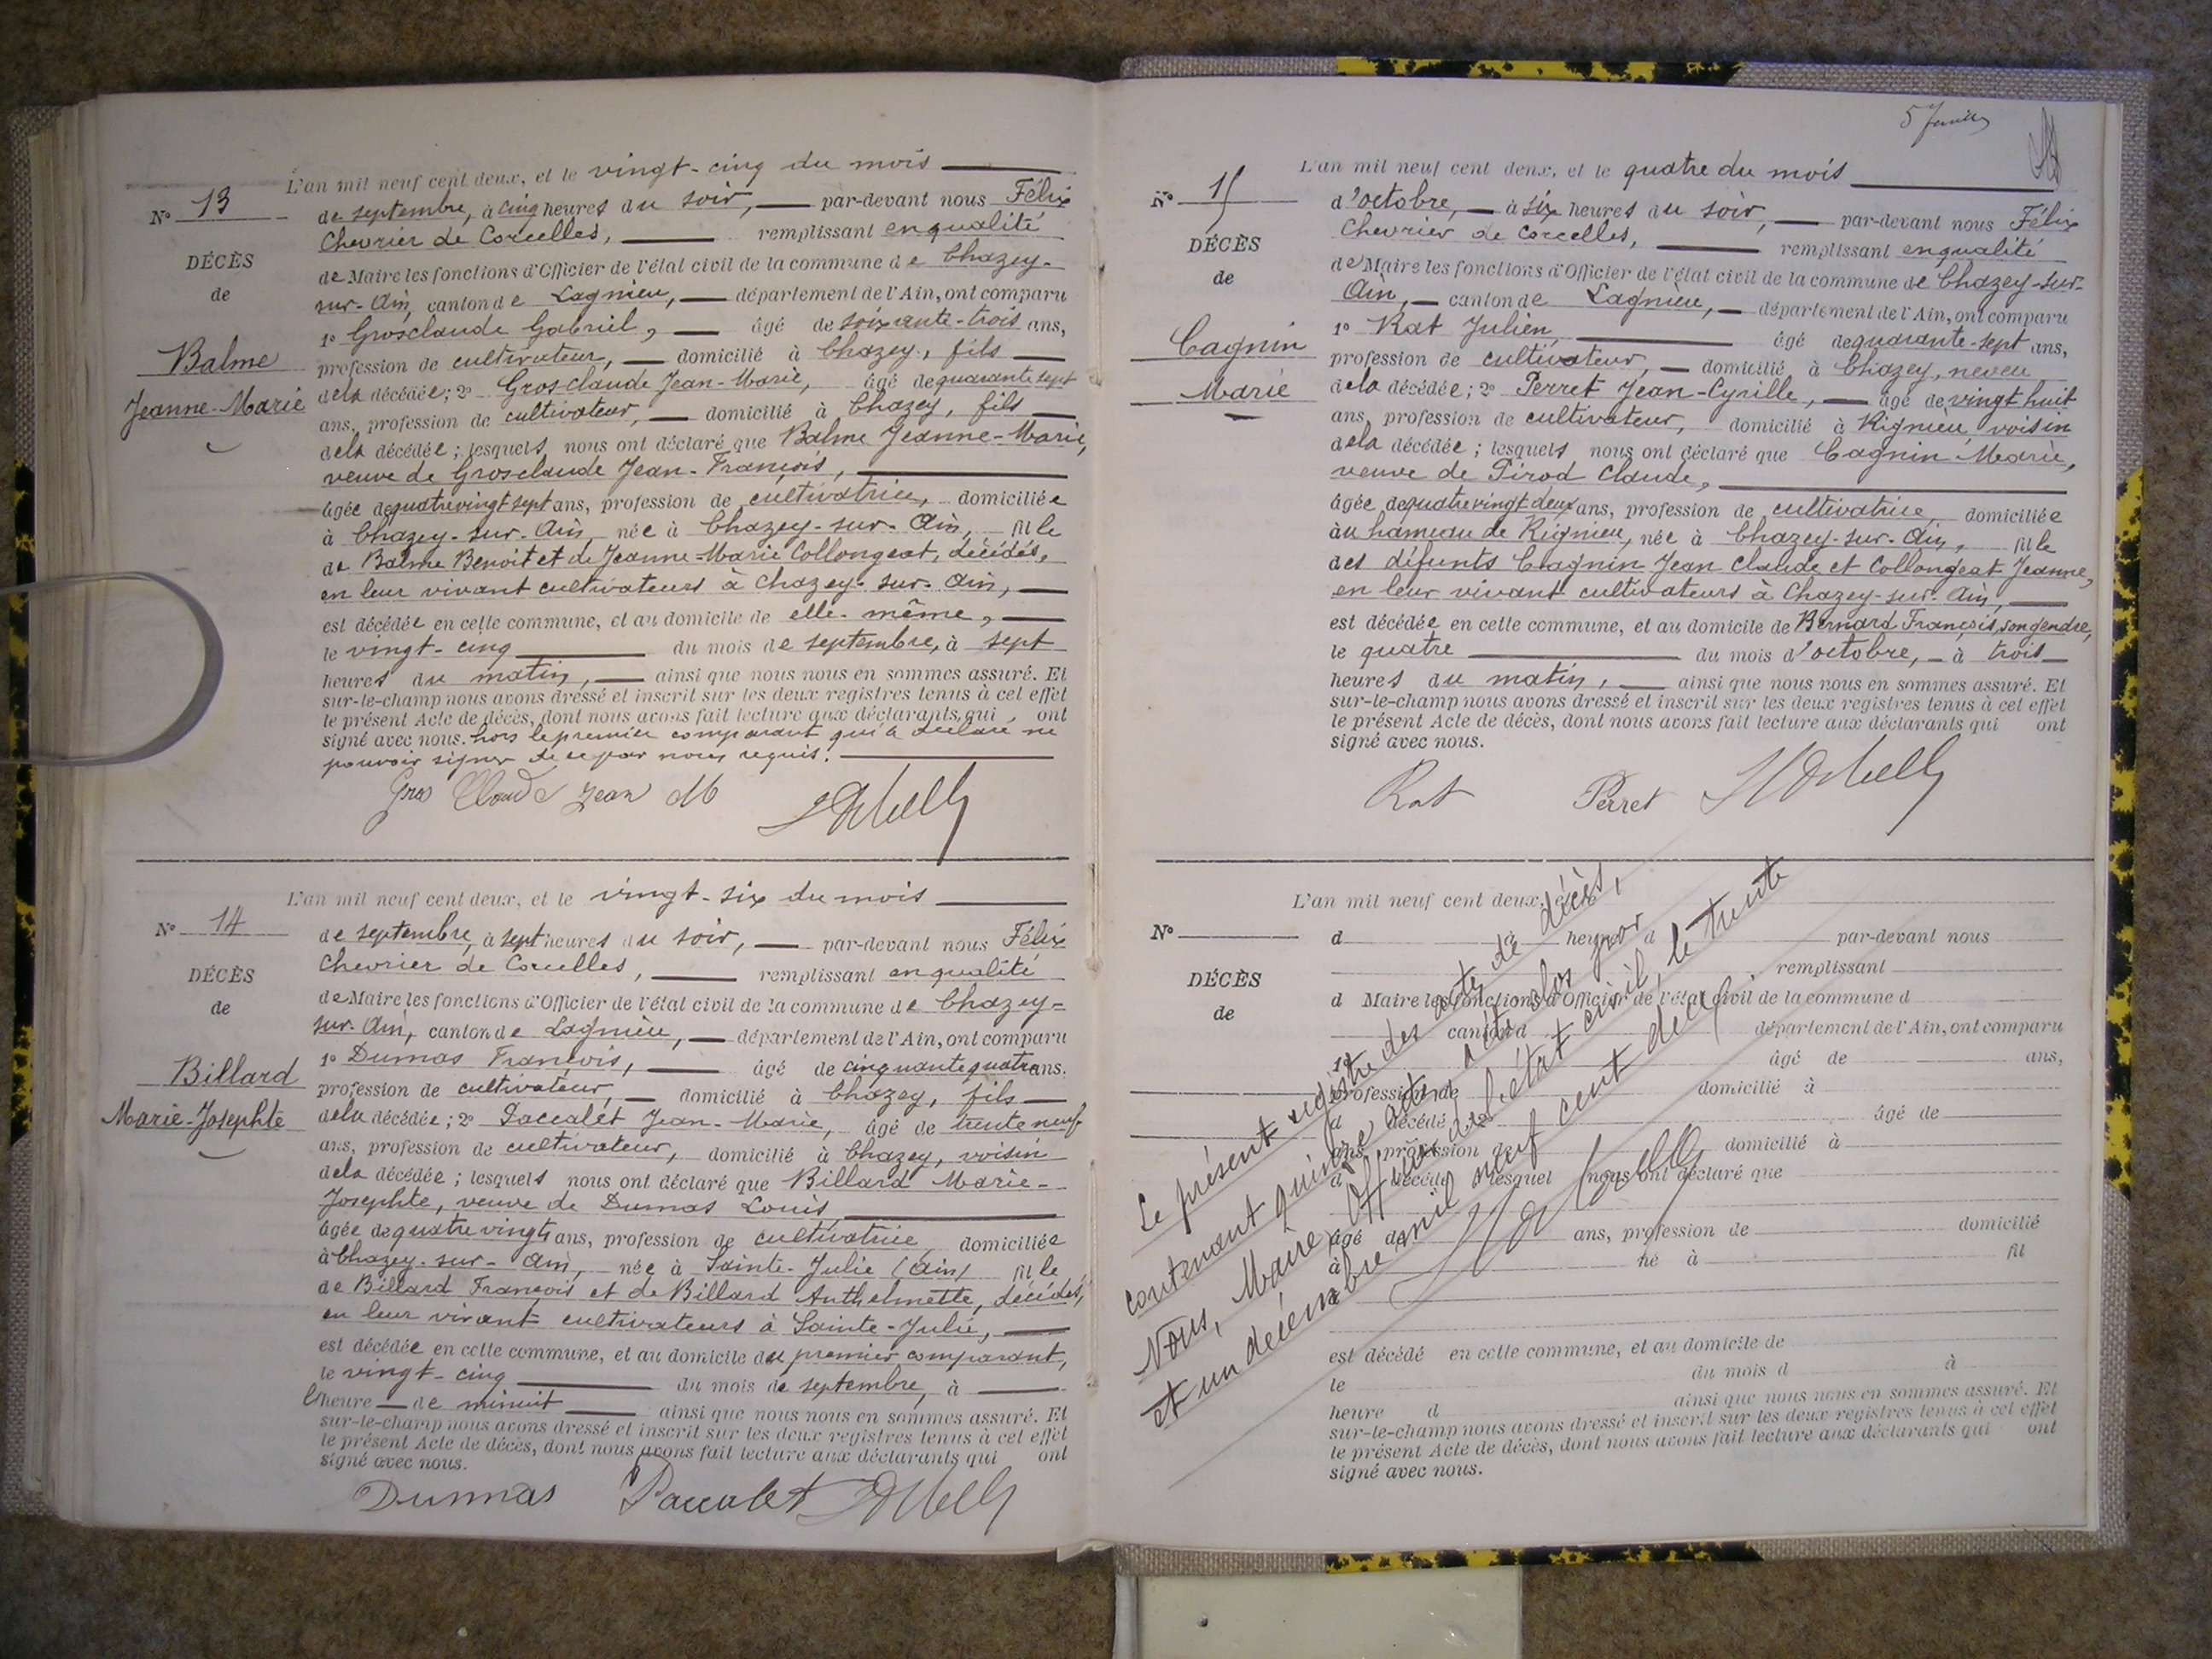 L'an mil neuf cent deux, et le vingt-cinq du mois
N° 13
de septembre, à cinq heures du soir, par-devant nous Félix
Chevrier de Corcelles, remplissant en qualité
DÉCÈS
de
de Maire les fonctions d'Officier de l'état civil de la commune de Chazey-
sur-Ain, canton de Lagnieu, département de l'Ain, ont comparu
1° Grosclaude Gabriel, âgé de soixante-trois ans,
Balme
profession de cultivateur, domicilié à Chazey, fils
Jeanne-Marie
de la décédée; 2° Grosclaude Jean-Marie, âgé de quarante sept
ans, profession de cultivateur, domicilié à Chazey, fils
de la décédée; lesquels nous ont déclaré que Balme Jeanne-Marie,
veuve de Grosclaude Jean-François,
âgée de quatre vingt sept ans, profession de cultivatrice, domiciliée
à Chazey-sur-Ain, née à Chazey-sur-Ain, fille
de Balme Benoit et de Jeanne-Marie Collongeat, décédés,
en leur vivant cultivateurs à Chazey-sur-Ain,
est décédée en cette commune, et au domicile de elle-même,
le vingt-cinq du mois de septembre, à sept
heures du matin, ainsi que nous nous en sommes assuré. Et
sur-le-champ nous avons dressé et inscrit sur les deux registres tenus à cet effet
le présent Acte de décès, dont nous avons fait lecture aux déclarants, qui ont
signé avec nous. hors le premier comparant qui a déclaré ne
pouvoir signer de ce par nous requis.
Gros Claude Jean M
L'an mil neuf cent deux, et le vingt-six du mois
N° 14
de septembre, à sept heures du soir, par-devant nous Félix
Chevrier de Corcelles, remplissant en qualité
DÉCÈS
de
de Maire les fonctions d'Officier de l'état civil de la commune de Chazey-
sur-Ain, canton de Lagnieu, département de l'Ain, ont comparu
1° Dumas François, âgé de cinquante quatre ans.
Billard
profession de cultivateur, domicilié à Chazey, fils
Marie-Josephte
de la décédée; 2° Paccalet Jean-Marie, âgé de trente neuf
ans, profession de cultivateur, domicilié à Chazey, voisin
de la décédée; lesquels nous ont déclaré que Billard Marie-
Josephte, veuve de Dumas Louis
âgée de quatre vingts ans, profession de cultivatrice domiciliée
à Chazey-sur-Ain, née à Sainte-Julie (Ain) fille
de Billard François et de Billard Anthelmette, décédés,
en leur vivant cultivateurs à Sainte-Julie,
est décédée en cette commune, et au domicile du premier comparant,
le vingt-cinq du mois de septembre, à
l'heure de minuit ainsi que nous nous en sommes assuré. Et
sur-le-champ nous avons dressé et inscrit sur les deux registres tenus à cet effet
le présent Acte de décès, dont nous avons fait lecture aux déclarants qui ont
signé avec nous.
Dumas Paccalet
5 Janvier
L'an mil neuf cent deux, et le quatre du mois
N° 15
d'octobre, à six heures du soir, par-devant nous Félix
Chevrier de Corcelles, remplissant en qualité
DÉCÈS
de
de Maire les fonctions d'Officier de l'état civil de la commune de Chazey-sur-
Ain, canton de Lagnieu, département de l'Ain, ont comparu
1° Rat Julien, âgé de quarante-sept ans,
Cagnin
profession de cultivateur, domicilié à Chazey, neveu
Marie
de la décédée; 2° Perret Jean-Cyrille, âgé de vingt huit
ans, profession de cultivateur, domicilié à Rignieu, voisin
de la décédée; lesquels nous ont déclaré que Cagnin Marie,
veuve de Pirod Claude,
âgée de quatre vingt deux ans, profession de cultivatrice domiciliée
au hameau de Rignieu, née à Chazey-sur-Ain, fille
des défunts Cagnin Jean Claude et Collongeat Jeanne,
en leur vivant cultivateurs à Chazey-sur-Ain,
est décédée en cette commune, et au domicile de Bernard François, son gendre,
le quatre du mois d'octobre, à trois
heures du matin, ainsi que nous nous en sommes assuré. Et
sur-le-champ nous avons dressé et inscrit sur les deux registres tenus à cet effet
le présent Acte de décès, dont nous avons fait lecture aux déclarants qui ont
signé avec nous.
Rat Perret
L'an mil neuf cent deux, et le
N°
d à heure d par-devant nous
remplissant
DÉCÈS
de
d Maire les fonctions d'Officier de l'état civil de la commune d
canton d département de l'Ain, ont comparu
1° âgé de ans,
profession de domicilié à
d décédé âgé de
ans, profession de domicilié à
d décédé lesquel nous ont déclaré que
âgé de ans, profession de domicilié
à né à fil
est décédé en cette commune, et au domicile de
le du mois d à
heure d ainsi que nous nous en sommes assuré. Et
sur-le-champ nous avons dressé et inscrit sur les deux registres tenus à cet effet
le présent Acte de décès, dont nous avons fait lecture aux déclarants qui ont
signé avec nous.
Le présent registre des actes de décès,
contenant quinze actes a été clos par
Nous, Maire, Officier de l'état civil, le trente
et un décembre mil neuf cent deux.